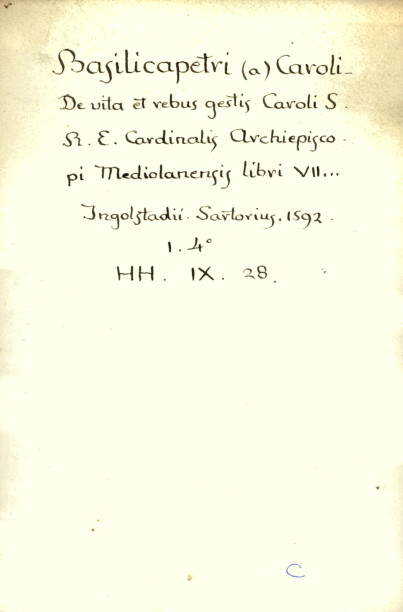 Basilicapetri (a) Caroli_
De vita et rebus gestis Caroli S.
R. E. Cardinalis Archiepisco-
pi Mediolanensis libri VII...
Ingolstadii. Sartorius. 1592.
1. 4°
HH. IX. 28.
C